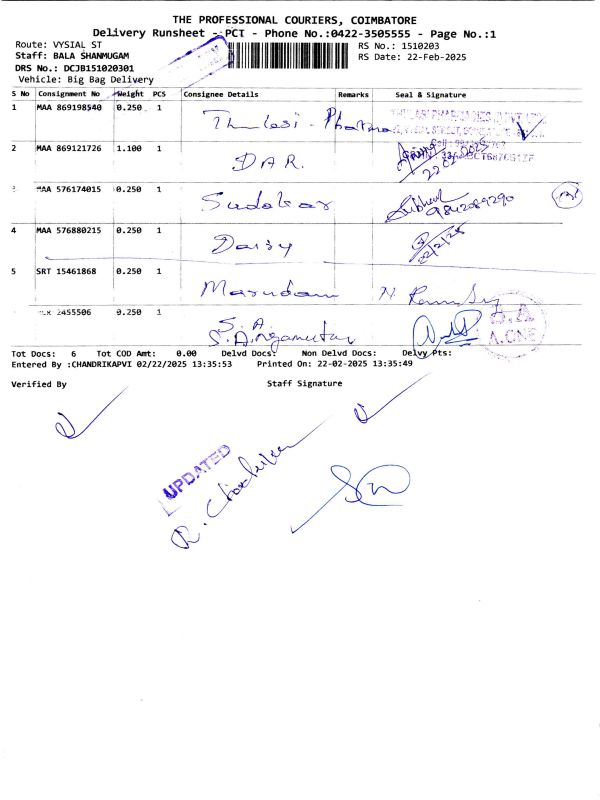 THE PROFESSIONAL COURIERS, COIMBATORE
Delivery Runsheet - PCT - Phone No.:0422-3505555 - Page No.:1
Route: VYSIAL ST RS No.: 1510203
Staff: BALA SHANMUGAM RS Date: 22-Feb-2025
DRS No.: DCJB151020301
Vehicle: Big Bag Delivery
S No Consignment No Weight PCS Consignee Details Remarks Seal & Signature
1 MAA 869198540 0.250 1 Thulasi - Pharma
2 MAA 869121726 1.100 1 DAR. 22 02 2025
MAA 576174015 0.250 1 Sudakar 9842089290
4 MAA 576880215 0.250 1 Daisy 22/2/25
5 SRT 15461868 0.250 1 N
2455506 0.250 1 S.A S.A
A.ONE
Tot Docs: 6 Tot COD Amt: 0.00 Delvd Docs: Non Delvd Docs: Delvy Pts:
Entered By :CHANDRIKAPVI 02/22/2025 13:35:53 Printed On: 22-02-2025 13:35:49
Verified By Staff Signature
UPDATED